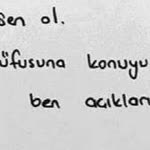 sen ol.
üfusuna konuyu
ben acıklan